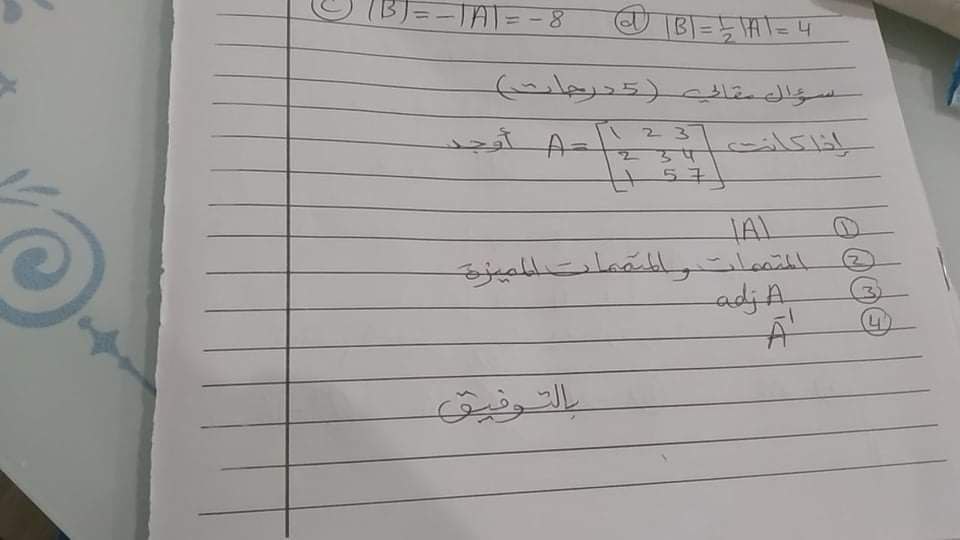 Ⓒ |B| = -|A| = -8 ⓓ |B| = 1/2 |A| = 4
سؤال مقالي (5 درجات)
إذا كانت A = [1 2 3; 2 3 4; 1 5 7] أوجد
① |A|
② المتممات والمتممات المميزة
③ adj A
④ A⁻¹
بالتوفيق